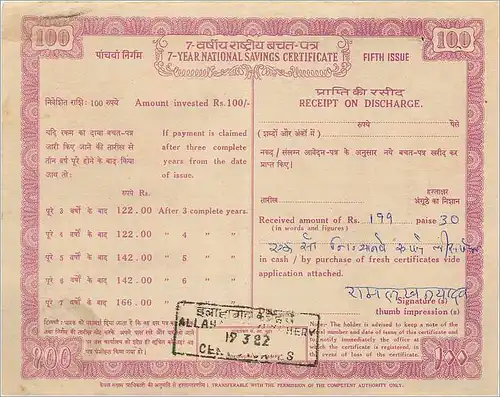 100
७-वर्षीय राष्ट्रीय बचत-पत्र
100
पांचवां निर्गम
7-YEAR NATIONAL SAVINGS CERTIFICATE
FIFTH ISSUE
निवेशित राशि: 100 रुपये
Amount invested Rs.100/-
यदि रकम का दावा बचत-पत्र
जारी किए जाने की तारीख से
तीन वर्ष पूरे होने के बाद किया
जाय तो:
If payment is claimed
after three complete
years from the date
of issue.
रुपये Rs.
पूरे 3 वर्षों के बाद 122.00 After 3 complete years.
पूरे 4 वर्षों के बाद 122.00 " 4 " "
पूरे 5 वर्षों के बाद 142.00 " 5 " "
पूरे 6 वर्षों के बाद 142.00 " 6 " "
पूरे 7 वर्षों के बाद 166.00 " "
प्राप्ति की रसीद
RECEIPT ON DISCHARGE.
रुपये पैसे
(शब्दों और अंकों में)
नकद / संलग्न आवेदन-पत्र के अनुसार नये बचत-पत्र खरीद कर
प्राप्त किए।
हस्ताक्षर
तारीख अंगूठे का निशान
Received amount of Rs. 199 paise 30
(in words and figures)
एक सौ
in cash / by purchase of fresh certificates vide
application attached.
Signature (s)
thumb impression (s)
Note:-The holder is advised to keep a note of the
number and date of issue of this certificate and
to notify immediately the office at
which the certificate is registered, in
the event of loss of the certificate.
19 3 82
१००
१००
TRANSFERABLE WITH THE PERMISSION OF THE COMPETENT AUTHORITY ONLY.